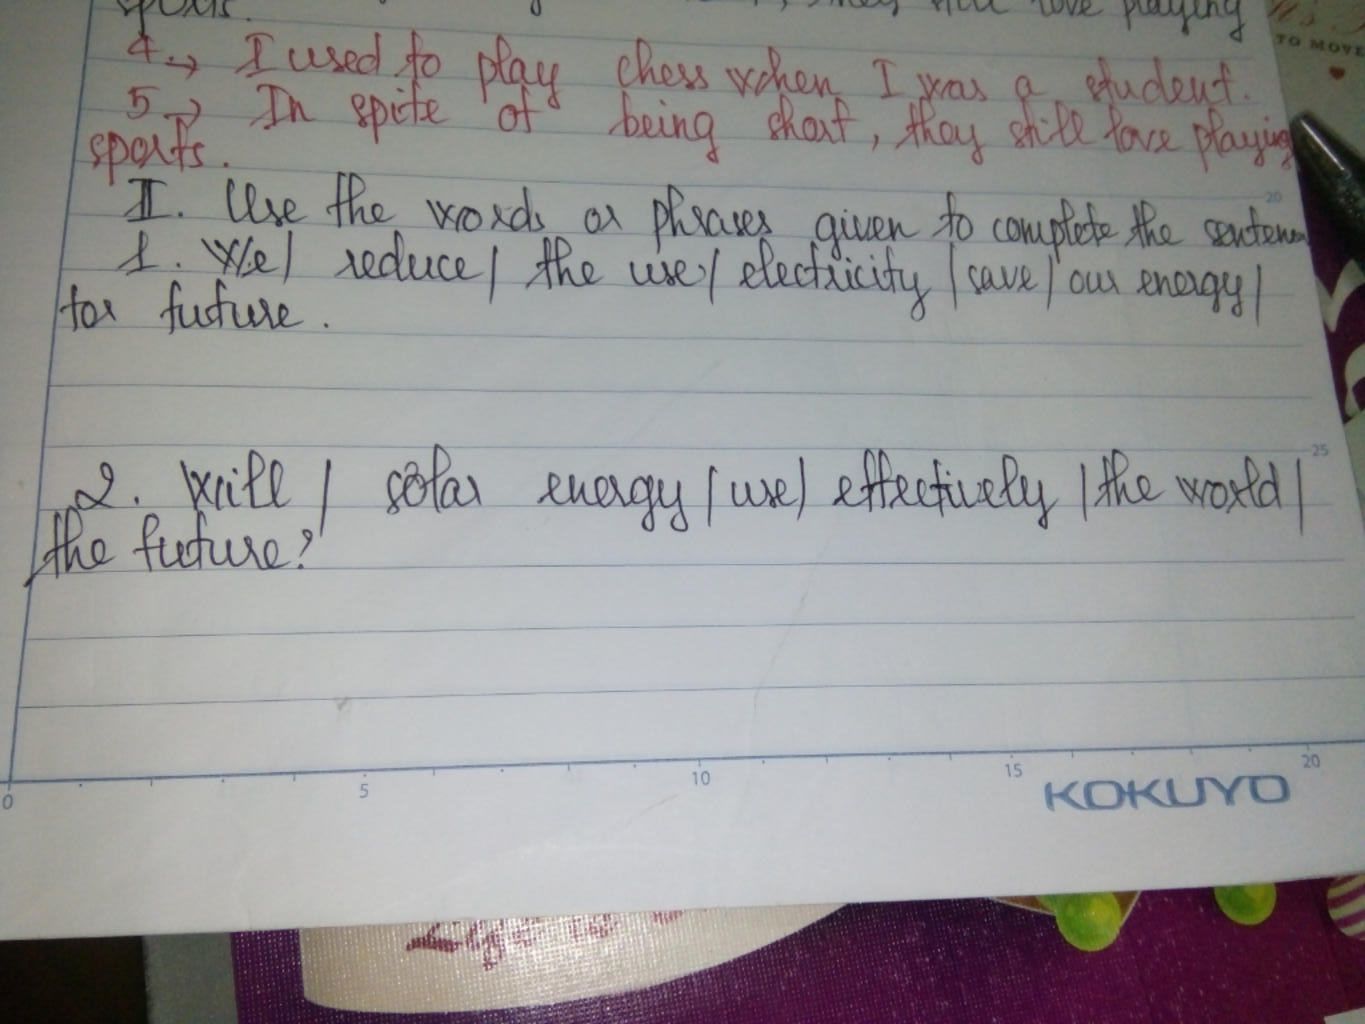 sports. love playing
TO MOVE
4 → I used to play chess when I was a student.
5 → In spite of being short, they still love playing
sports.
II. Use the words or phrases given to complete the
1. We/ reduce/ the use/ electricity /save/ our energy/
for future.
2. Will / solar energy / use/ effectively / the world /
the future?
20
25
0 5 10 15 20
KOKUYO